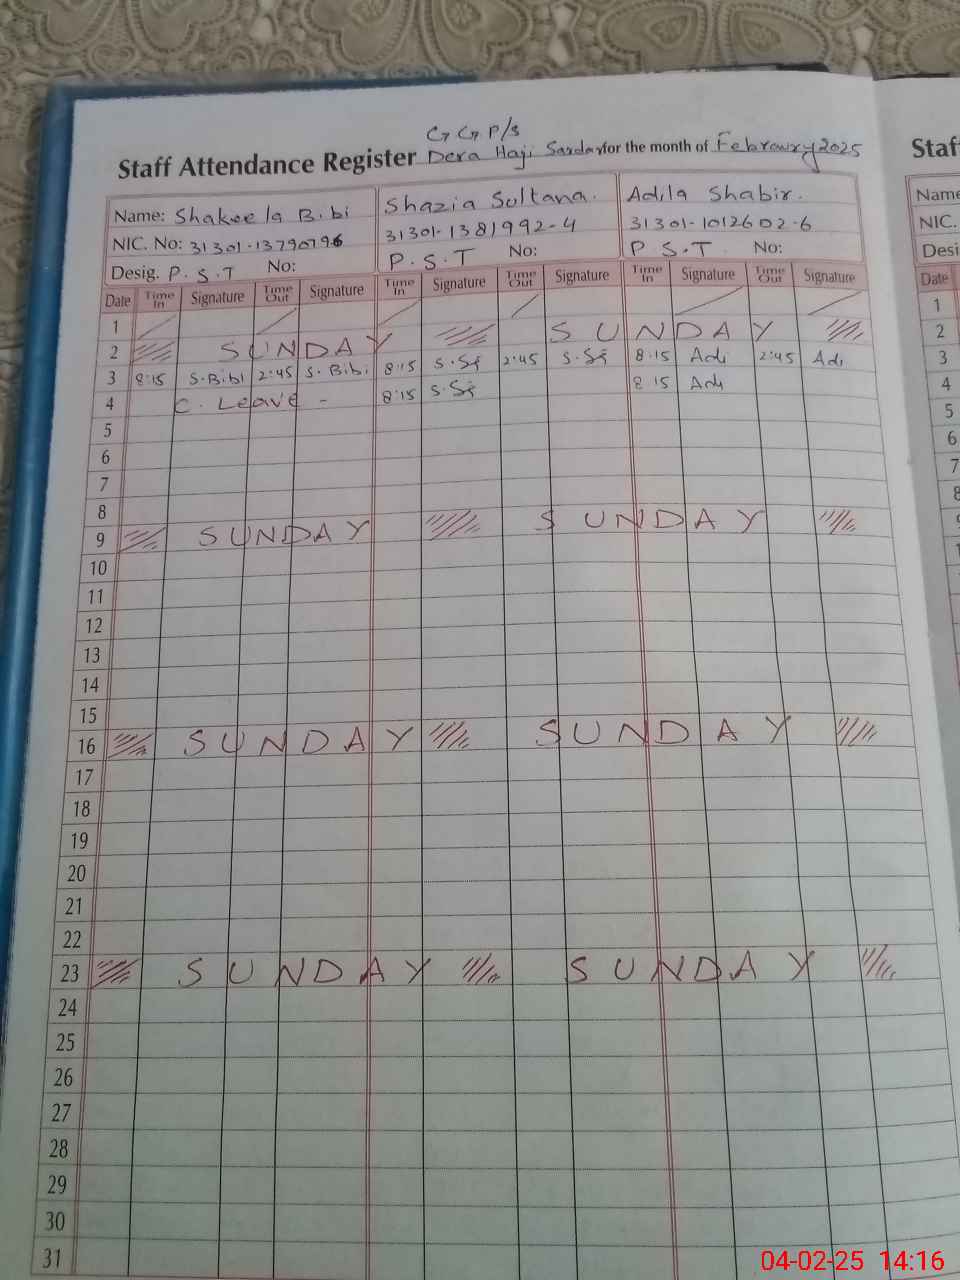 G G P/S
Staff Attendance Register Dera Haji Sardar for the month of Febrowry 2025
Name: Shakeela Bibi Shazia Sultana. Adila Shabir.
NIC. No: 31301-13790796 31301-1381992-4 31301-1012602-6
Desig. P.S.T No: P.S.T No: P.S.T No:
Date Time In Signature Time Out Signature Time In Signature Time Out Signature Time In Signature Time Out Signature
1
2 SUNDAY SUNDAY
3 8:15 S.Bibi 2:45 S.Bibi 8:15 2:45 8:15 Adi 2:45 Adi
4 C. Leave - 8:15 8:15 Adi
5
6
7
8
9 SUNDAY SUNDAY
10
11
12
13
14
15
16 SUNDAY SUNDAY
17
18
19
20
21
22
23 SUNDAY SUNDAY
24
25
26
27
28
29
30
31
Staf
Name
NIC.
Desi
Date
1
2
3
4
5
6
7
8
04-02-25 14:16